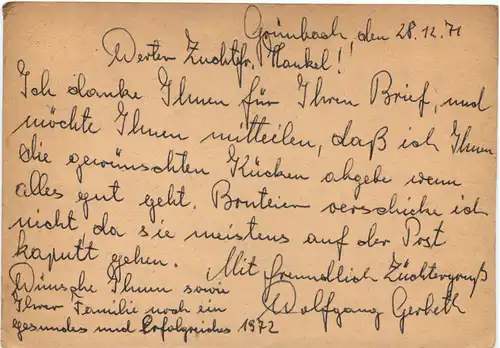 Grünbach, den 28.12.71
Werter Zuchtfr. Hankel!
Ich danke Ihnen für Ihren Brief, und
möchte Ihnen mitteilen, daß ich Ihnen
die gewünschten Kücken abgebe wenn
alles gut geht. Bruteier verschicke ich
nicht da sie meistens auf der Post
kaputt gehen.
Mit freundlich Züchtergruß
Wolfgang Gerbeth
Wünsche Ihnen sowie
Ihrer Familie noch ein
gesundes und Erfolgreiches 1972